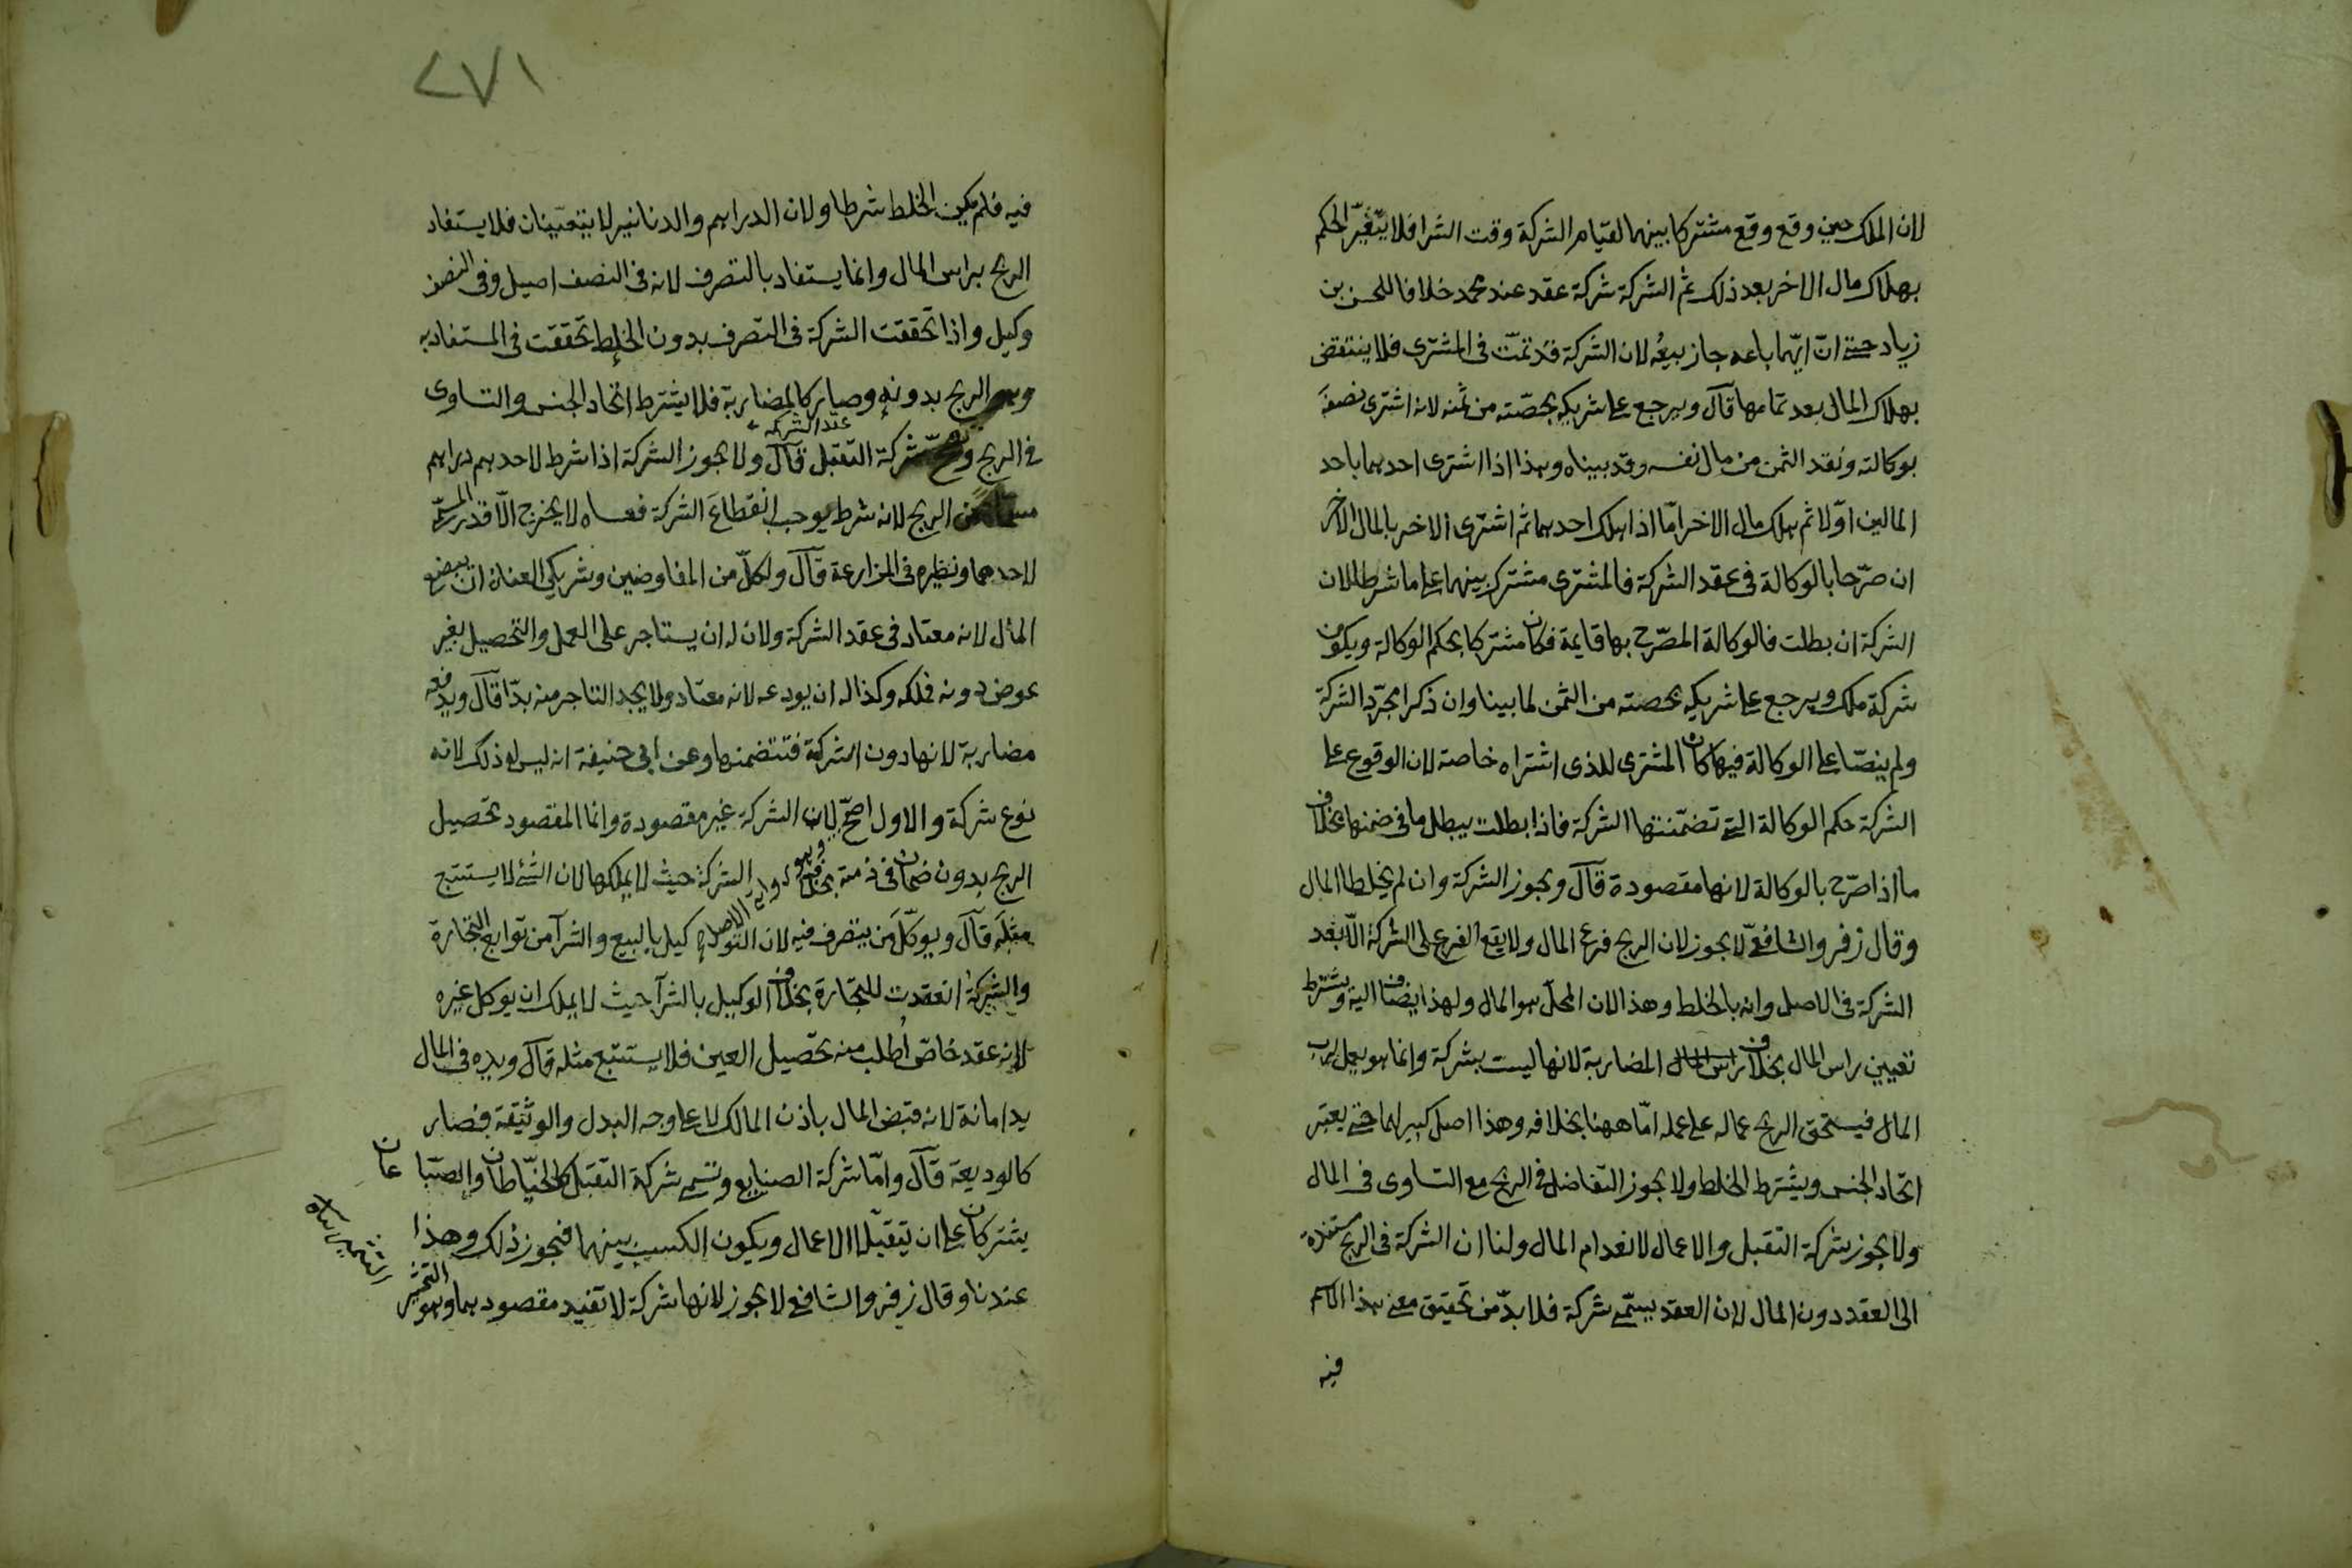 لان الملك حين وقع وقع مشتركا بينهما لقيام الشركة وقت الشرا فلا يتغيّر الحكم
بهلاك مال الاخر بعد ذلك ثم الشركة شركة عقد عند محمد خلافا للحسن بن
زياد حتى انّ ايّهما باعه جاز بيعُه لان الشركة قد تمّت فى المشترى فلا ينتقض
بهلاك المال بعد تمامها قآل ويرجع على شريكه بحصّته من ثمنه لانه اشترى نصفَه
بوكالته ونقد الثمن من مال نفسه وقد بيناه وهذا اذا اشترى احدهما باحد
المالين اوّلا ثم هلك مال الاخر امّا اذا هلك احدهما ثم اشترى الاخر بالمال الاخر
ان صرّحا بالوكالة فى عقد الشركة فالمشترى مشترك بينهما على ما شرطا لان
الشركة ان بطلت فالوكالة المصرّح بها قايمة فكان مشتركا بحكم الوكالة ويكون
شركة ملك ويرجع على شريكه بحصته من الثمن لما بينا وان ذكرا مجرّد الشركة
ولم ينصّا على الوكالة فيها كان المشترى للذى اشتراه خاصة لان الوقوع على
الشركة حكم الوكالة التى تضمّنتها الشركة فاذا بطلت يبطل ما فى ضمنها بخلاف
ما اذا صرّح بالوكالة لانها مقصودة قآل ويجوز الشركة وان لم يخلطا المال
وقال زفر والشافعىّ لا يجوز لان الربح فرع المال ولا يقع الفرع على الشركة الّا بعد
الشركة فى الاصل وانه بالخلط وهذا لان المحلّ هو المال ولهذا يضاف اليه ويشترط
تعيين راس المال بخلاف راس المال المضاربة لانها ليست بشركة وانما هو يعمل لرب
المال فيستحق الربح عماله على عمله امّا ههنا بخلافه وهذا اصل كبير لهما حتى يعتبر
اتّحاد الجنس ويشترط الخلط ولا يجوز التفاضل فى الربح مع التساوى فى المال
ولا يجوز شركة التقبل والاعمال لانعدام المال ولنا ان الشركة فى الربح مستندة
الى العقد دون المال لان العقد يسمّى شركة فلا بدّ من تحقيق معنى هذا الاسم
فيه
٢٧١
فيه فلم يكن الخلط شرطا ولان الدراهم والدنانير لا يتعيّنان فلا يستفاد
الربح براس المال وانما يستفاد بالتصرف لانه فى النصف اصيل وفى النصف
وكيل واذا تحققت الشركة فى التصرف بدون الخلط تحققت فى المستفاد به
وهو الربح بدونه وصار كالمضاربة فلا يشترط اتّحاد الجنس والتساوى
فى الربح وتصحّ شركة التقبل قآل ولا يجوز الشركة اذا شرط لاحدهم دراهم
عند الشركة
مسماة من الربح لانه شرط يوجب انقطاعَ الشركة فعساه لا يخرج الّا قدر المسمّى
لاحدهما ونظيره فى المزارعة قآل ولكلّ من المفاوضين وشريكى العنان ان يبضع
المال لانه معتاد فى عقد الشركة ولان له ان يستاجر على العمل والتحصيل بغير
عوض دونه فيملكه وكذا له ان يودعه لانه معتاد ولا يجد التاجر منه بدّا قآل ويدفعه
مضاربة لانها دون الشركة فتتضمنها وعن ابى حنيفة انه ليس له ذلك لانه
نوع شركة والاول اصحّ لان الشركة غير مقصودة وانما المقصود تحصيل
وهو رواية الاصل
الربح بدون ضمان فى ذمته بخلاف الشركة حيث لا يملكها لان الشئ لا يستتبع
مثلَه قآل ويوكّلَ مَن يتصرف فيه لان التوكيل بالبيع والشرآ من توابع التجارة
والشركةُ انعقدت للتجارة بخلاف الوكيل بالشرآ حيث لا يملك ان يوكل غيره
لانه عقد خاصّ طُلب منه تحصيل العين فلا يستتبع مثله قآل ويده فى المال
يد امانة لانه قبض المال باذن المالك لا على وجه البدل والوثيقة فصار
كالوديعة قآل وامّا شركة الصنايع وتسمى شركة التقبل كالخيّاطان والصبّاغان
يشتركان على ان يتقبّلا الاعمال ويكون الكسب بينهما فيجوز ذلك وهذا
عندنا وقال زفر والشافعى لا يجوز لانها شركة لا تفيد مقصودهما وهو التثمير